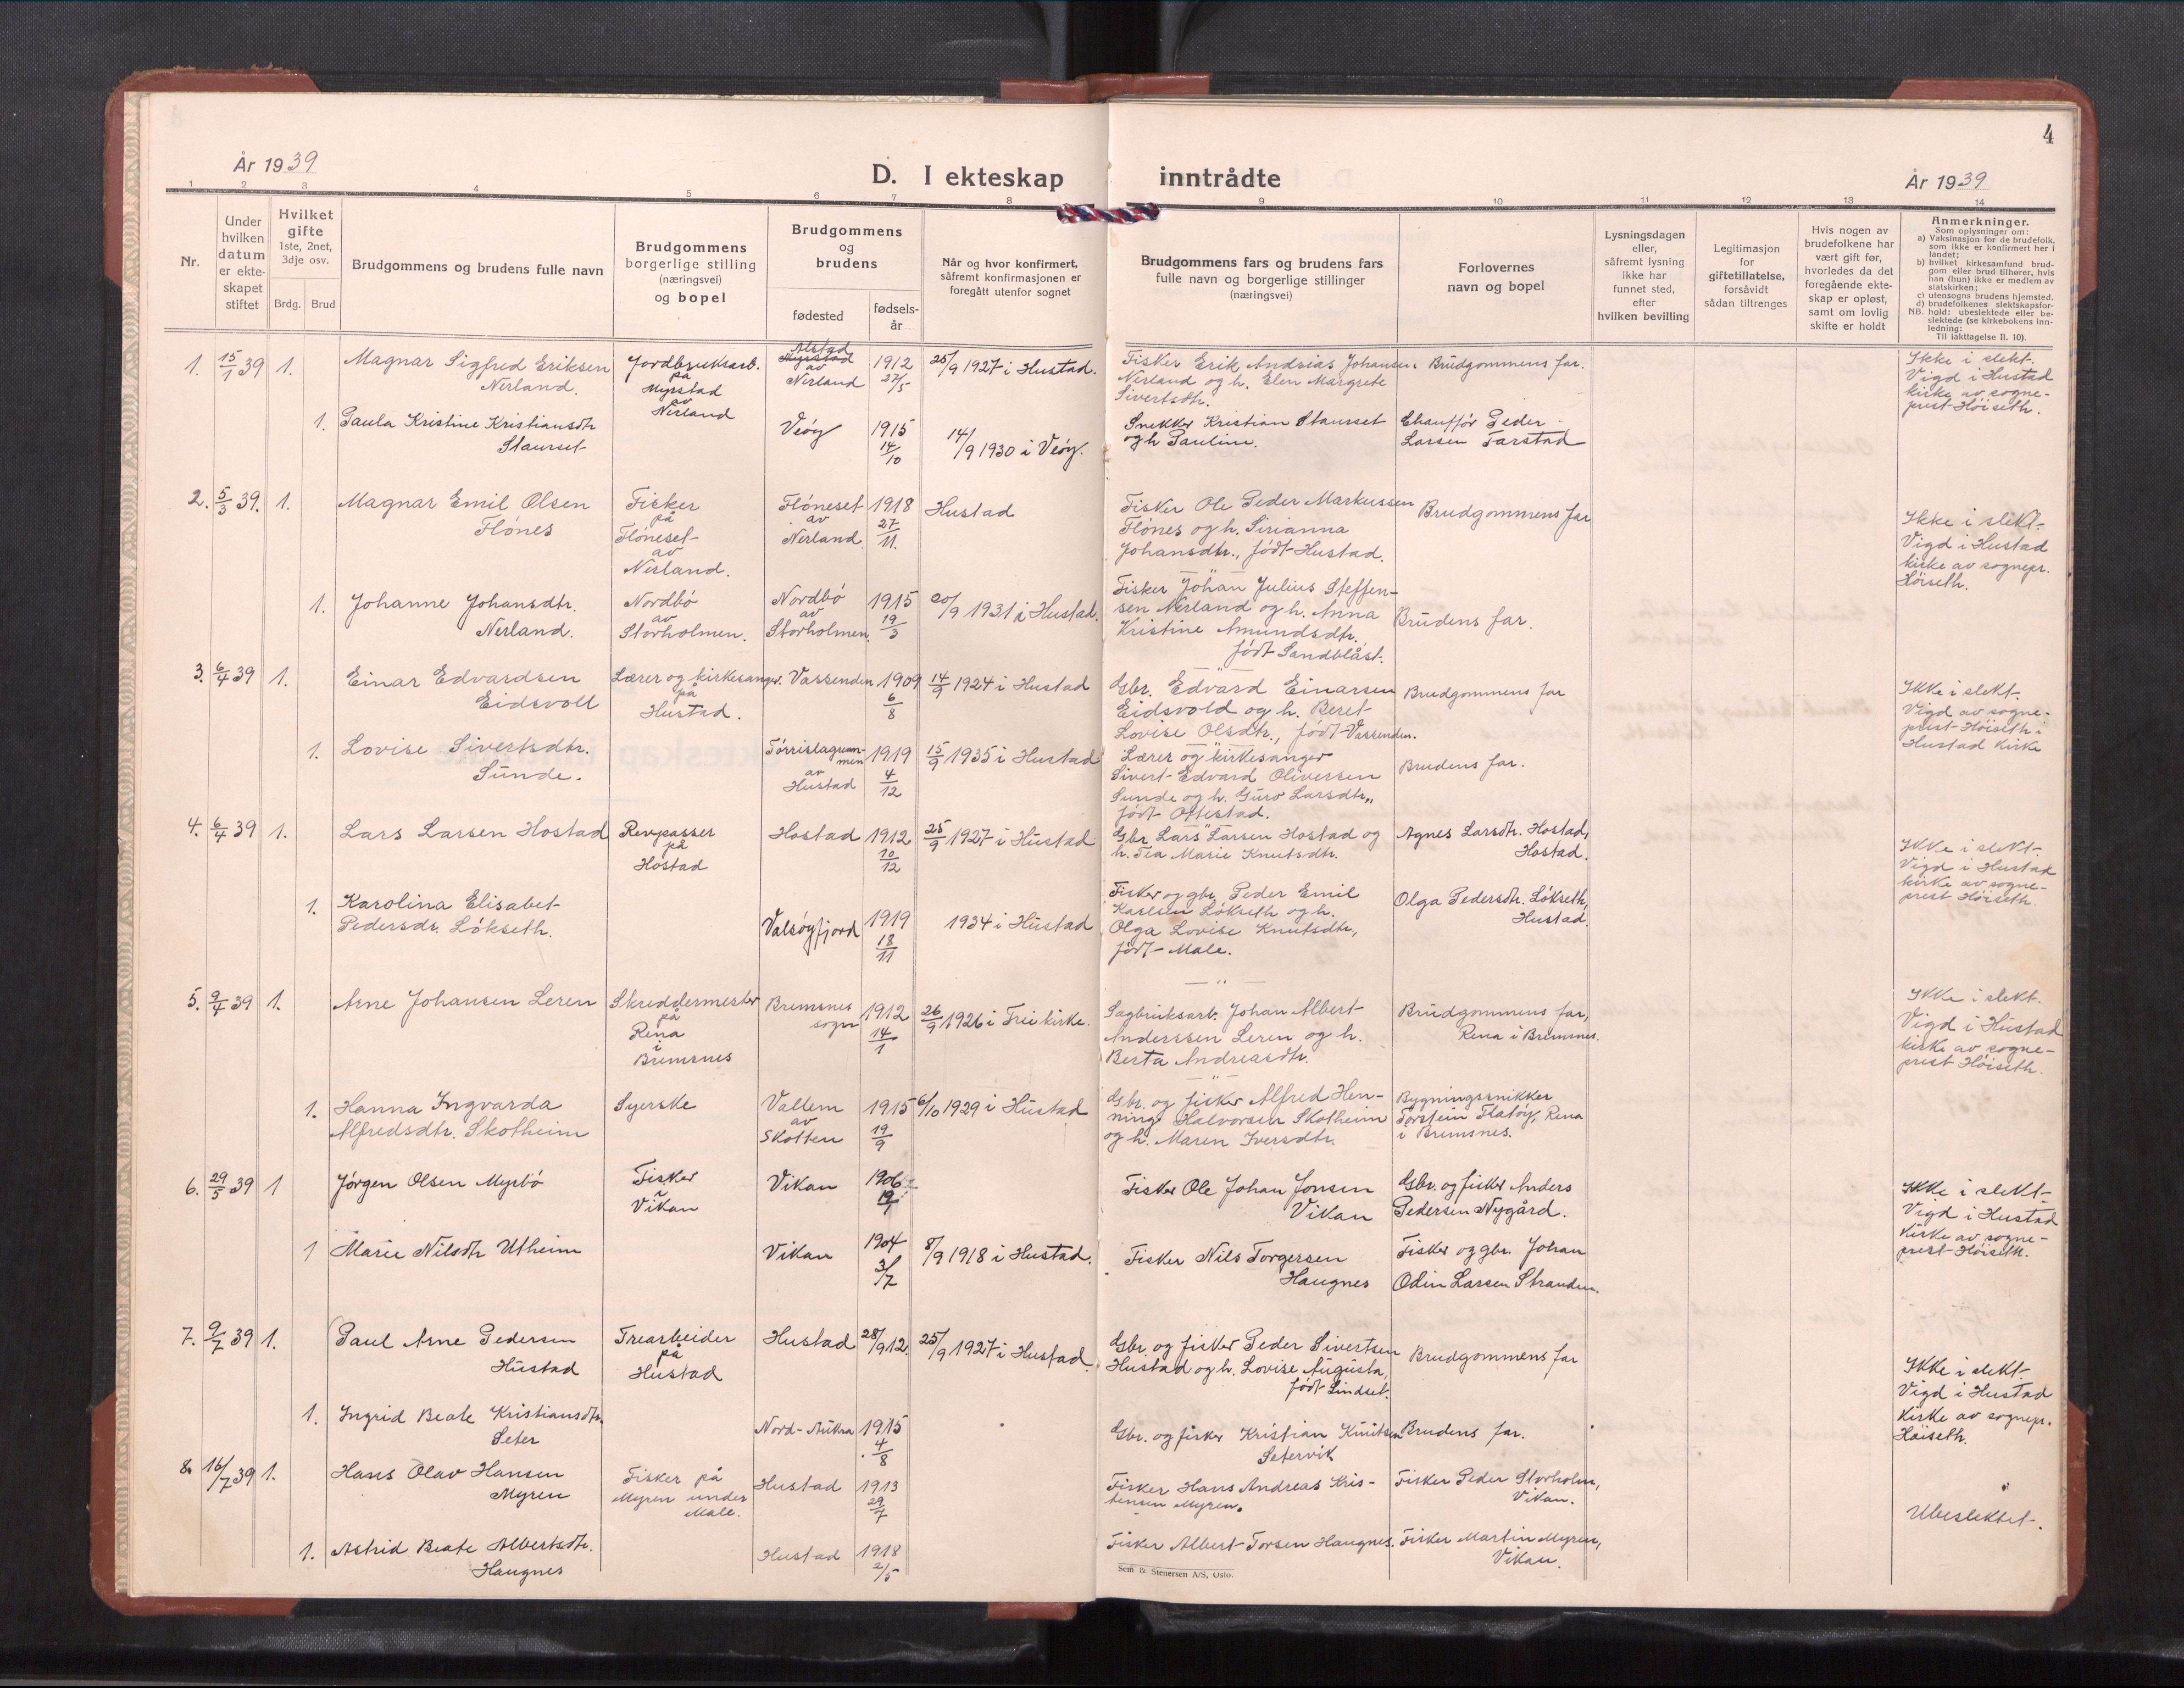 4
År 1939
D. I ekteskap
inntrådte
År 1939
1 2 3 4 5 6 7 8 9 10 11 12 13 14
Nr.
Under
hvilken
datum
er ekte-
skapet
stiftet
Hvilket
gifte
1ste, 2net,
3dje osv.
Brdg. Brud
Brudgommens og brudens fulle navn
Brudgommens
borgerlige stilling
(næringsvei)
og bopel
Brudgommens
og
brudens
fødested
fødsels-
år
Når og hvor konfirmert,
såfremt konfirmasjonen er
foregått utenfor sognet
Brudgommens fars og brudens fars
fulle navn og borgerlige stillinger
(næringsvei)
Forlovernes
navn og bopel
Lysningsdagen
eller,
såfremt lysning
ikke har
funnet sted,
efter
hvilken bevilling
Legitimasjon
for
giftetillatelse,
forsåvidt
sådan tiltrenges
Hvis nogen av
brudefolkene har
vært gift før,
hvorledes da det
foregående ekte-
skap er opløst,
samt om lovlig
skifte er holdt
Anmerkninger.
Som oplysninger om:
a) Vaksinasjon for de brudefolk,
som ikke er konfirmert her i
landet;
b) hvilket kirkesamfund brud-
gom eller brud tilhører, hvis
han (hun) ikke er medlem av
statskirken;
c) utensogns brudens hjemsted.
d) brudefolkenes slektskapsfor-
NB. hold: ubeslektede eller be-
slektede (se kirkebokens inn-
ledning:
Til iakttagelse II. 10).
1. 15/1 39 1.
Magnar Sigfred Eriksen
Nerland.
Jordbruksarb.
på
Myrstad
av
Nerland
Alstad
Myrstad
av
Nerland
1912
27/5
25/9 1927 i Hustad.
Fisker Erik Andreas Johansen
Nerland og h. Elen Margrete
Sivertsdtr.
Brudgommens far.
Ikke i slekt.
Vigd i Hustad
kirke av sogne-
prest Höiseth.
1. Paula Kristine Kristiansdtr
Staurset
Veöy
1915
14/10
14/9 1930 i Veöy.
Snekker Kristian Staurset
og h Pauline.
Chauffør Peder
Larsen Tarstad
2. 5/3 39. 1.
Magnar Emil Olsen
Flönes
Fisker
på
Flöneset
av
Nerland.
Flöneset
av
Nerland.
1918
27/11.
Hustad
Fisker Ole Peder Markussen
Flönes og h. Sirianna
Johansdtr., født Hustad.
Brudgommens far
Ikke i slekt.
Vigd i Hustad
kirke av sognepr.
Höiseth.
1. Johanne Johansdtr.
Nerland.
Nordbö
av
Storholmen.
Nordbö
av
Storholmen.
1915
19/3
20/9 1931 i Hustad.
Fisker Johan Julius Steffen-
sen Nerland og h. Anna
Kristine Amundsdtr.,
født Sandblåst.
Brudens far.
3. 6/4 39 1.
Einar Edvardsen
Eidsvoll
Lærer og kirkesanger.
på
Hustad.
Vassenden
1909
6/8
14/9 1924 i Hustad
Gbr. Edvard Einarsen
Eidsvold og h. Beret
Lovise Olsdtr., født Vassenden.
Brudgommens far
Ikke i slekt.
Vigd av sogne-
prest Höiseth i
Hustad kirke
1. Lovise Sivertsdtr.
Sunde.
Tørrislagrun-
nen
av
Hustad
1919
4/12
15/9 1935 i Hustad
Lærer og kirkesanger
Sivert Edvard Oliversen
Sunde og h. Guro Larsdtr.,
født Ottestad.
Brudens far.
4. 6/4 39 1.
Lars Larsen Hostad
Revpasser
på
Hostad
Hostad
1912
10/12
25/9 1927 i Hustad
Gbr Lars Larsen Hostad og
h. Tea Marie Knutsdtr.
Agnes Larsdtr. Hostad,
Hostad.
Ikke i slekt.
Vigd i Hustad
kirke av sogne-
prest Höiseth.
1. Karolina Elisabet
Pedersdr. Lökseth.
Valsöyfjord
1919
18/11
1934 i Hustad
Fisker og gbr. Peder Emil
Karlsen Lökseth og h.
Olga Lovise Knutsdtr,
født Male.
Olga Pedersdtr. Lökseth,
Hustad.
5. 9/4 39 1.
Arne Johansen Leren
Skreddermester
på
Rena
i
Bremsnes
Bremsnes
sogn
1912
14/1
26/9 1926 i Frei kirke.
Sagbruksarb. Johan Albert
Anderssen Leren og h.
Berta Andreasdtr.
Brudgommens far,
Rena i Bremsnes.
Ikke i slekt.
Vigd i Hustad
kirke av sogne-
prest Höiseth.
1. Hanna Ingvarda
Alfredsdtr. Skotheim
Syerske
Vallem
av
Skotten
1915
19/9
6/10 1929 i Hustad
Gbr. og fisker Alfred Hen-
ning Halvorsen Skotheim
og h. Maren Iversdtr.
Bygningssnikker
Torstein Flatöy, Rena
i Bremsnes.
6. 29/5 39 1
Jörgen Olsen Myrbö
Fisker
Vikan
Vikan
1906
Fisker Ole Johan Jonsen
Vikan
Gbr. og fisker Anders
Pedersen Nygård.
Ikke i slekt
Vigd i Hustad
kirke av sogne-
prest Höiseth.
1 Marie Nilsdtr Utheim
Vikan
1904
3/7
8/9 1918 i Hustad.
Fisker Nils Torgersen
Haugnes
Fisker og gbr. Johan
Odin Larsen Stranden.
7. 9/7 39 1.
Paul Arne Pedersen
Hustad
Trearbeider
på
Hustad
Hustad
28/9 12.
25/9 1927 i Hustad.
Gbr. og fisker Peder Sivertsen
Hustad og h. Lovise Augusta,
født Lindset.
Brudgommens far
Ikke i slekt.
Vigd i Hustad
kirke av sognepr.
Höiseth.
1. Ingrid Beate Kristiansdtr.
Seter
Nord-Aukra
1915
4/8
Gbr. og fisker Kristian Knutsen
Setervik
Brudens far.
8. 16/7 39 1.
Hans Olav Hansen
Myren
Fisker på
Myren under
Male.
Hustad
1913
29/7
Fisker Hans Andreas Kris-
tensen Myren.
Fisker Peder Storholm,
Vikan.
Ubeslektet.
1. Astrid Beate Albertsdtr.
Haugnes
Hustad
1918
2/5
Fisker Albert Torsen Haugnes.
Fisker Martin Myren,
Vikan.
Sem & Stenersen A/S, Oslo.